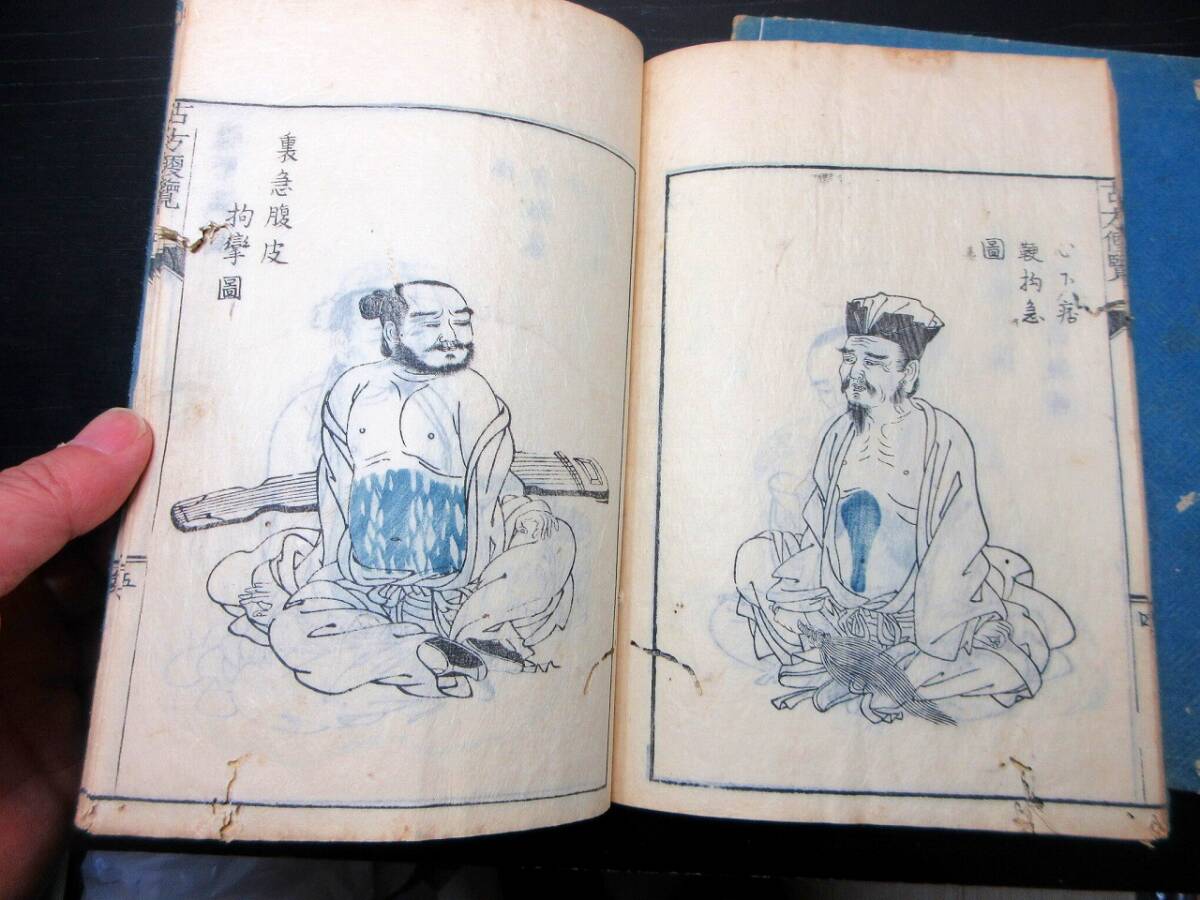 心下痞
鞕拘急
圖
古方便覽
裏急腹皮
拘攣圖
古方便覽
五